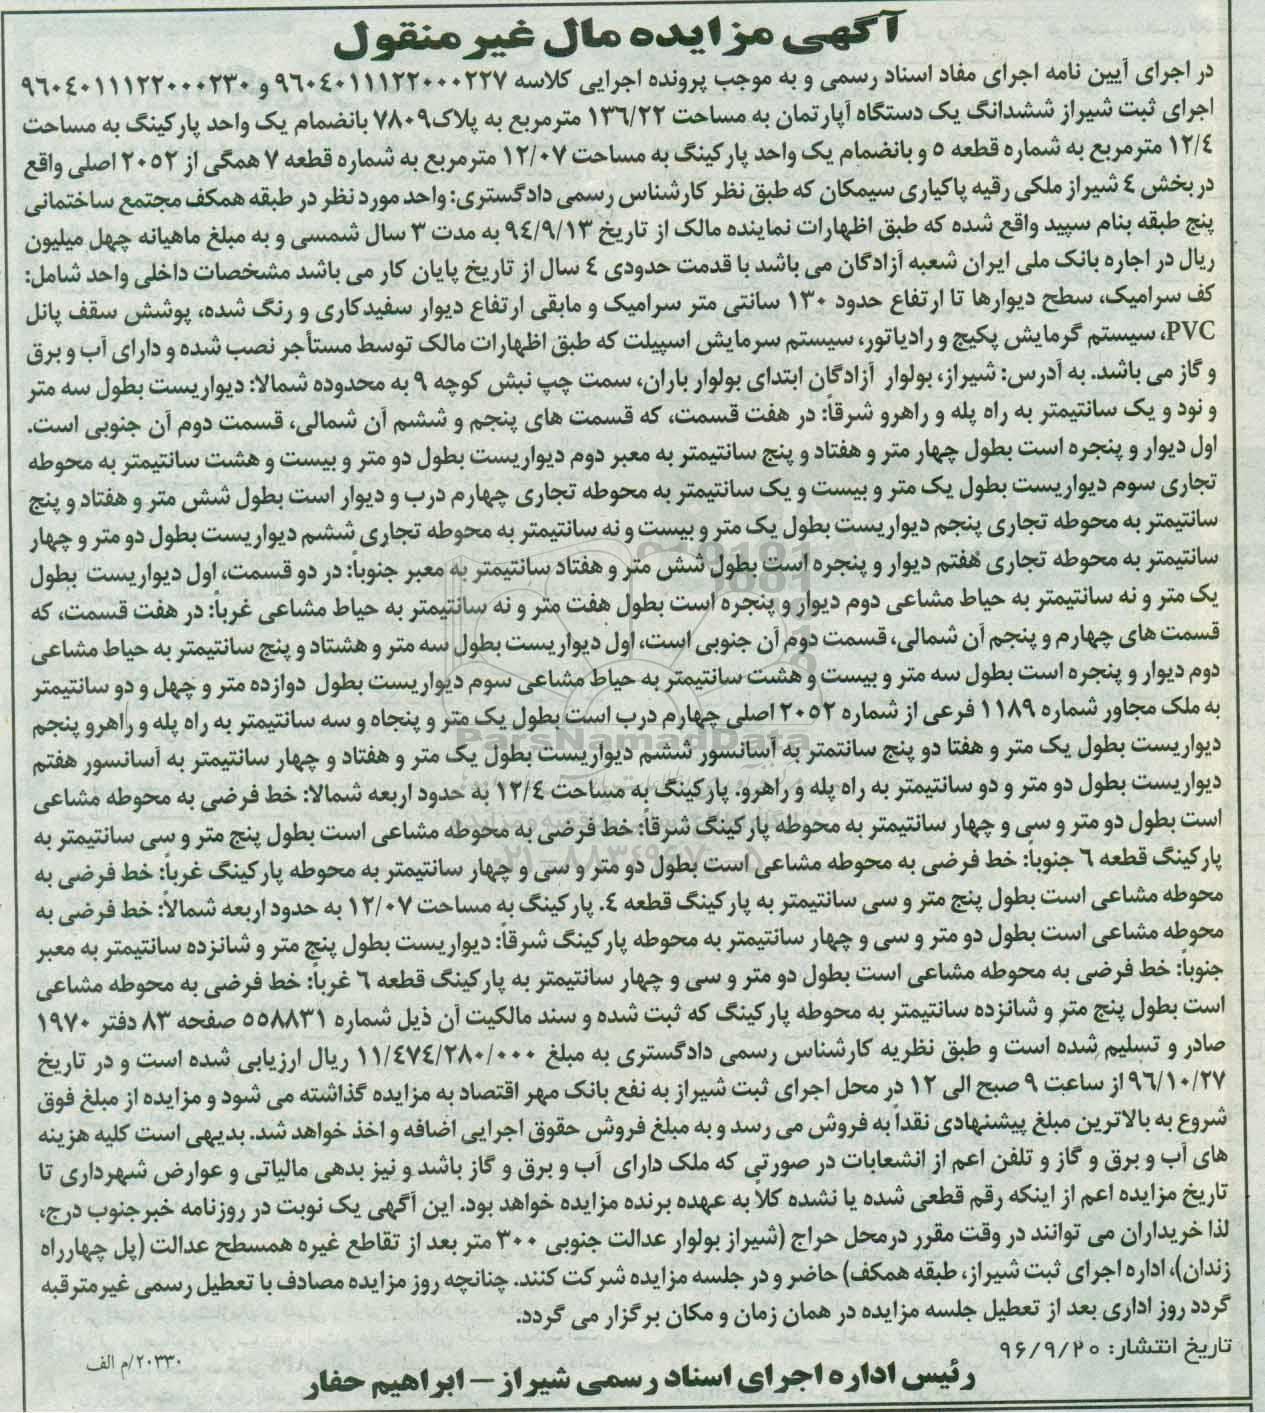 آگهی مزایده مال غیر منقول
در اجرای آیین نامه اجرای مفاد اسناد رسمی و به موجب پرونده اجرایی کلاسه ۹۶۰۴۰۱۱۱۲۲۰۰۰۲۲۷ و ۹۶۰۴۰۱۱۱۲۲۰۰۰۲۳۰
اجرای ثبت شیراز ششدانگ یک دستگاه آپارتمان به مساحت ۱۳۶/۲۲ مترمربع به پلاک۷۸۰۹ بانضمام یک واحد پارکینگ به مساحت
۱۲/۴ مترمربع به شماره قطعه ۵ و بانضمام یک واحد پارکینگ به مساحت ۱۲/۰۷ مترمربع به شماره قطعه ۷ همگی از ۲۰۵۲ اصلی واقع
در بخش ۴ شیراز ملکی رقیه پاکیاری سیمکان که طبق نظر کارشناس رسمی دادگستری: واحد مورد نظر در طبقه همکف مجتمع ساختمانی
پنج طبقه بنام سپید واقع شده که طبق اظهارات نماینده مالک از تاریخ ۹۴/۹/۱۳ به مدت ۳ سال شمسی و به مبلغ ماهیانه چهل میلیون
ریال در اجاره بانک ملی ایران شعبه آزادگان می باشد با قدمت حدودی ۴ سال از تاریخ پایان کار می باشد مشخصات داخلی واحد شامل:
کف سرامیک، سطح دیوارها تا ارتفاع حدود ۱۳۰ سانتی متر سرامیک و مابقی ارتفاع دیوار سفیدکاری و رنگ شده، پوشش سقف پانل
PVC، سیستم گرمایش پکیج و رادیاتور، سیستم سرمایش اسپیلت که طبق اظهارات مالک توسط مستأجر نصب شده و دارای آب و برق
و گاز می باشد. به آدرس: شیراز، بولوار آزادگان ابتدای بولوار باران، سمت چپ نبش کوچه ۹ به محدوده شمالا: دیواریست بطول سه متر
و نود و یک سانتیمتر به راه پله و راهرو شرقاً: در هفت قسمت، که قسمت های پنجم و ششم آن شمالی، قسمت دوم آن جنوبی است.
اول دیوار و پنجره است بطول چهار متر و هفتاد و پنج سانتیمتر به معبر دوم دیواریست بطول دو متر و بیست و هشت سانتیمتر به محوطه
تجاری سوم دیواریست بطول یک متر و بیست و یک سانتیمتر به محوطه تجاری چهارم درب و دیوار است بطول شش متر و هفتاد و پنج
سانتیمتر به محوطه تجاری پنجم دیواریست بطول یک متر و بیست و نه سانتیمتر به محوطه تجاری ششم دیواریست بطول دو متر و چهار
سانتیمتر به محوطه تجاری هفتم دیوار و پنجره است بطول شش متر و هفتاد سانتیمتر به معبر جنوباً: در دو قسمت، اول دیواریست بطول
یک متر و نه سانتیمتر به حیاط مشاعی دوم دیوار و پنجره است بطول هفت متر و نه سانتیمتر به حیاط مشاعی غرباً: در هفت قسمت، که
قسمت های چهارم و پنجم آن شمالی، قسمت دوم آن جنوبی است، اول دیواریست بطول سه متر و هشتاد و پنج سانتیمتر به حیاط مشاعی
دوم دیوار و پنجره است بطول سه متر و بیست و هشت سانتیمتر به حیاط مشاعی سوم دیواریست بطول دوازده متر و چهل و دو سانتیمتر
به ملک مجاور شماره ۱۱۸۹ فرعی از شماره ۲۰۵۲ اصلی چهارم درب است بطول یک متر و پنجاه و سه سانتیمتر به راه پله و راهرو پنجم
دیواریست بطول یک متر و هفتا دو پنج سانتمتر به آسانسور ششم دیواریست بطول یک متر و هفتاد و چهار سانتیمتر به آسانسور هفتم
دیواریست بطول دو متر و دو سانتیمتر به راه پله و راهرو. پارکینگ به مساحت ۱۲/۴ به حدود اربعه شمالا: خط فرضی به محوطه مشاعی
است بطول دو متر و سی و چهار سانتیمتر به محوطه پارکینگ شرقاً: خط فرضی به محوطه مشاعی است بطول پنج متر و سی سانتیمتر به
پارکینگ قطعه ۶ جنوباً: خط فرضی به محوطه مشاعی است بطول دو متر و سی و چهار سانتیمتر به محوطه پارکینگ غرباً: خط فرضی به
محوطه مشاعی است بطول پنج متر و سی سانتیمتر به پارکینگ قطعه ۴. پارکینگ به مساحت ۱۲/۰۷ به حدود اربعه شمالاً: خط فرضی به
محوطه مشاعی است بطول دو متر و سی و چهار سانتیمتر به محوطه پارکینگ شرقاً: دیواریست بطول پنج متر و شانزده سانتیمتر به معبر
جنوباً: خط فرضی به محوطه مشاعی است بطول دو متر و سی و چهار سانتیمتر به پارکینگ قطعه ۶ غرباً: خط فرضی به محوطه مشاعی
است بطول پنج متر و شانزده سانتیمتر به محوطه پارکینگ که ثبت شده و سند مالکیت آن ذیل شماره ۵۵۸۸۳۱ صفحه ۸۳ دفتر ۱۹۷۰
صادر و تسلیم شده است و طبق نظریه کارشناس رسمی دادگستری به مبلغ ۱۱/۴۷۴/۲۸۰/۰۰۰ ریال ارزیابی شده است و در تاریخ
۹۶/۱۰/۲۷ از ساعت ۹ صبح الی ۱۲ در محل اجرای ثبت شیراز به نفع بانک مهر اقتصاد به مزایده گذاشته می شود و مزایده از مبلغ فوق
شروع به بالاترین مبلغ پیشنهادی نقداً به فروش می رسد و به مبلغ فروش حقوق اجرایی اضافه و اخذ خواهد شد. بدیهی است کلیه هزینه
های آب و برق و گاز و تلفن اعم از انشعابات در صورتی که ملک دارای آب و برق و گاز باشد و نیز بدهی مالیاتی و عوارض شهرداری تا
تاریخ مزایده اعم از اینکه رقم قطعی شده یا نشده کلاً به عهده برنده مزایده خواهد بود. این آگهی یک نوبت در روزنامه خبرجنوب درج،
لذا خریداران می توانند در وقت مقرر درمحل حراج (شیراز بولوار عدالت جنوبی ۳۰۰ متر بعد از تقاطع غیره همسطح عدالت (پل چهارراه
زندان)، اداره اجرای ثبت شیراز، طبقه همکف) حاضر و در جلسه مزایده شرکت کنند. چنانچه روز مزایده مصادف با تعطیل رسمی غیرمترقبه
گردد روز اداری بعد از تعطیل جلسه مزایده در همان زمان و مکان برگزار می گردد.
تاریخ انتشار: ۹۶/۹/۲۰
۲۰۳۳۰/م الف
رئیس اداره اجرای اسناد رسمی شیراز – ابراهیم حفار
ParsNamadData